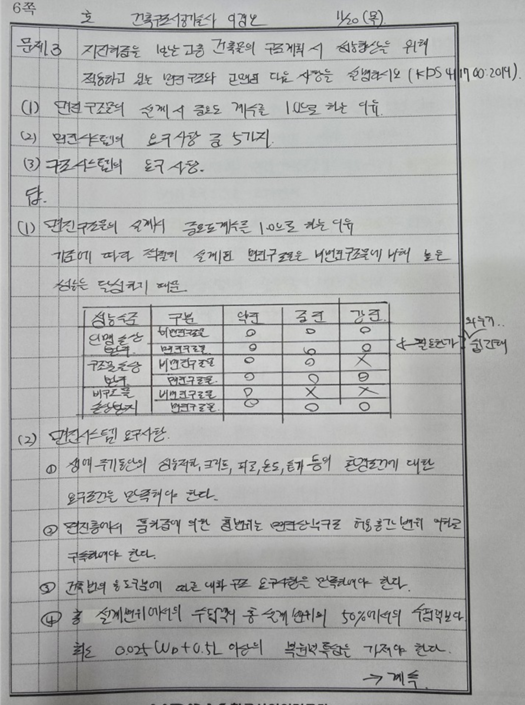 6쪽
호 건축구조기술사 11/20 (목)
문제3 지진하중을 받는 고층 건축물의 구조계획 시 성능향상을 위해
적용하고 있는 면진구조와 관련된 다음 사항을 설명하시오 (KDS 41 17 00:2019).
(1) 면진구조물의 설계시 중요도 계수를 1.0으로 하는 이유
(2) 면진시스템의 요구사항 중 5가지
(3) 구조시스템의 요구사항.
답.
(1) 면진구조물의 설계시 중요도계수를 1.0으로 하는 이유
기준에 따라 적절히 설계된 면진구조물은 비면진구조물에 비해 높은
성능을 달성하기 때문
성능수준 구분 약진 중진 강진
인명손상 방지 비면진구조물 O O O
면진구조물 O O O
구조물손상 방지 비면진구조물 O O X
면진구조물 O O O
비구조물 손상방지 비면진구조물 O X X
면진구조물 O O O
외우기..
필요한가 쉽긴해
(2) 면진시스템 요구사항.
① 생애주기동안의 성능저하, 크리프, 피로, 온도, 습기 등의 환경조건에 대한
요구조건을 만족해야 한다.
② 면진층에서 풍하중에 의한 횡변위는 면면상부구조 허용층간변위 이하로
구속하여야 한다.
③ 건축법의 용도구분에 따른 내화구조 요구사항을 만족하여야 한다.
④ 총 설계변위에서의 수평력이 총 설계변위의 50%에서의 수평력보다
최소 0.025 WD + 0.5L 이상의 복원력특성을 가져야 한다.
→ 계속